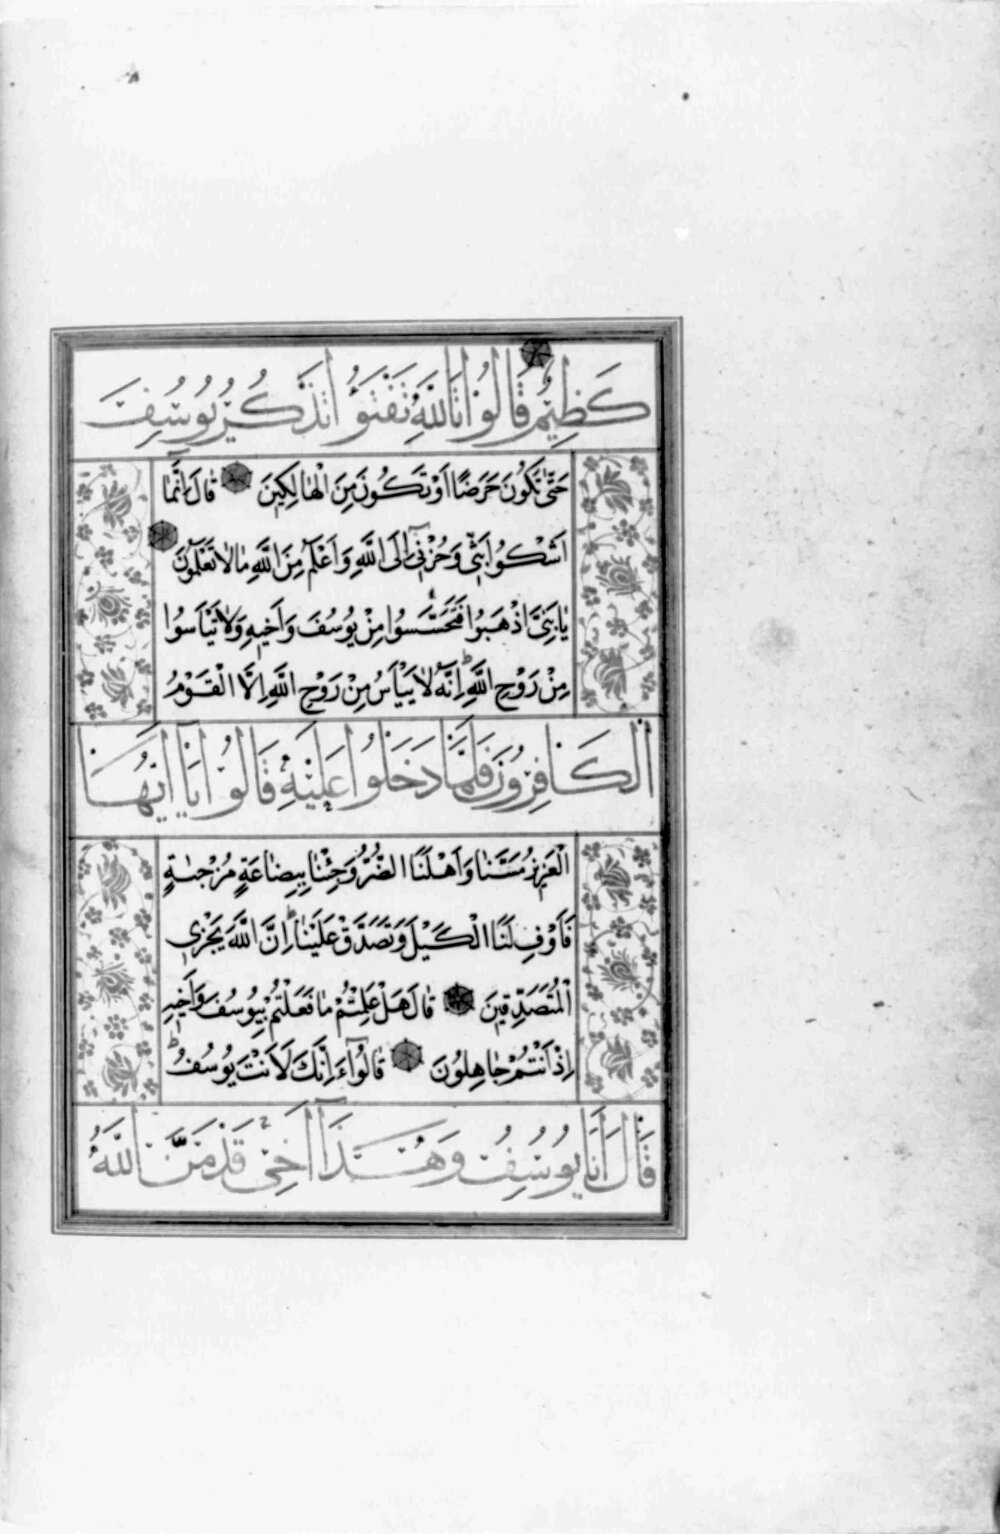 كَظِيمٌ قَالُوا تَاللَّهِ تَفْتَؤُا تَذْكُرُ يُوسُفَ
حَتّٰى تَكُونَ حَرَضًا اَوْ تَكُونَ مِنَ الْهَالِكِينَ قَالَ اِنَّمَا
اَشْكُوا بَثّٖى وَحُزْنٖٓى اِلَى اللَّهِ وَاَعْلَمُ مِنَ اللَّهِ مَالَا تَعْلَمُونَ
يَابَنِىَّ اذْهَبُوا فَتَحَسَّسُوا مِنْ يُوسُفَ وَاَخٖيهِ وَلَا تَيْاَسُوا
مِنْ رَوْحِ اللَّهِ ط اِنَّهُ لَا يَيْاَسُ مِنْ رَوْحِ اللَّهِ اِلَّا الْقَوْمُ
الْكَافِرُونَ فَلَمَّا دَخَلُوا عَلَيْهِ قَالُوا يَآ اَيُّهَا
الْعَزٖيزُ مَسَّنَا وَاَهْلَنَا الضُّرُّ وَجِئْنَا بِبِضَاعَةٍ مُزْجٰيةٍ
فَاَوْفِ لَنَا الْكَيْلَ وَتَصَدَّقْ عَلَيْنَا ط اِنَّ اللَّهَ يَجْزِى
الْمُتَصَدِّقٖينَ قَالَ هَلْ عَلِمْتُمْ مَا فَعَلْتُمْ بِيُوسُفَ وَاَخٖيهِ
اِذْ اَنْتُمْ جَاهِلُونَ قَالُوٓا ءَاِنَّكَ لَاَنْتَ يُوسُفُ ط
قَالَ اَنَا يُوسُفُ وَهٰذَآ اَخٖى قَدْ مَنَّ اللَّهُ